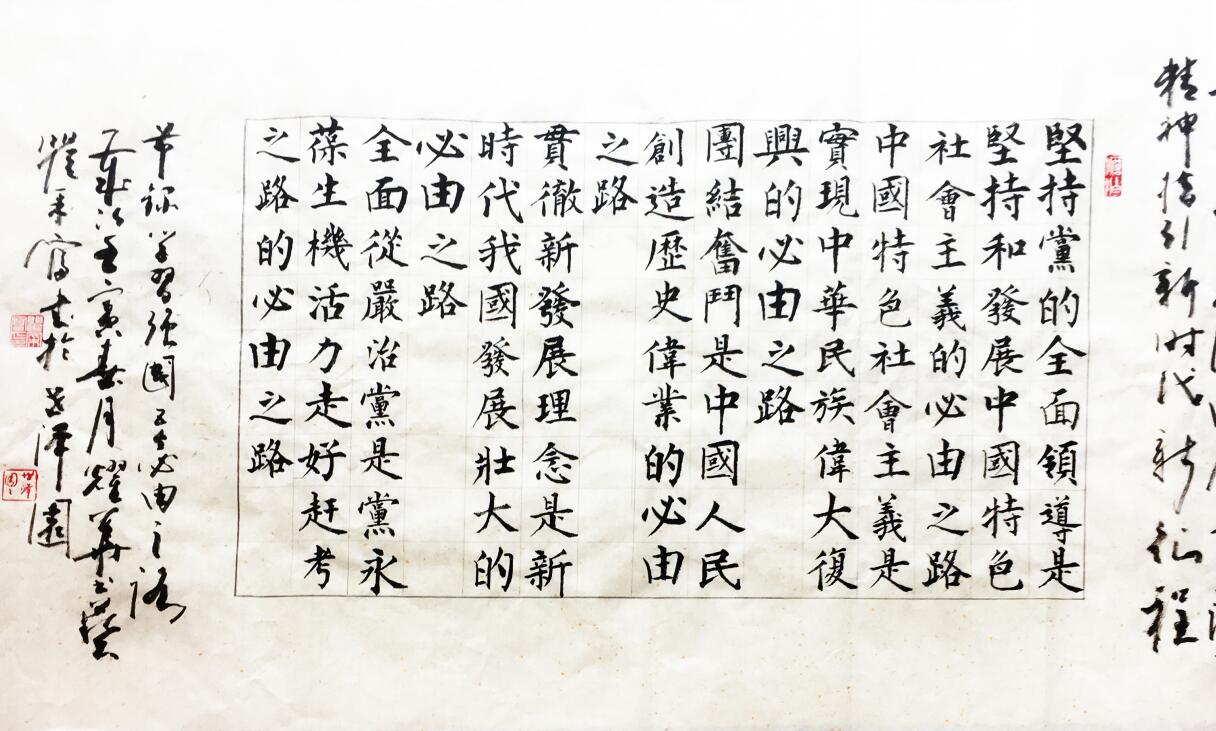 精神指引新时代新征程
堅持黨的全面領導是
堅持和發展中國特色
社會主義的必由之路
中國特色社會主義是
實現中華民族偉大復
興的必由之路
團結奮鬥是中國人民
創造歷史偉業的必由
之路
貫徹新發展理念是新
時代我國發展壯大的
必由之路
全面從嚴治黨是黨永
葆生機活力走好赶考
之路的必由之路
节録学習强國五个必由之路
歲次壬寅春月耀華書
寫書於世泽園